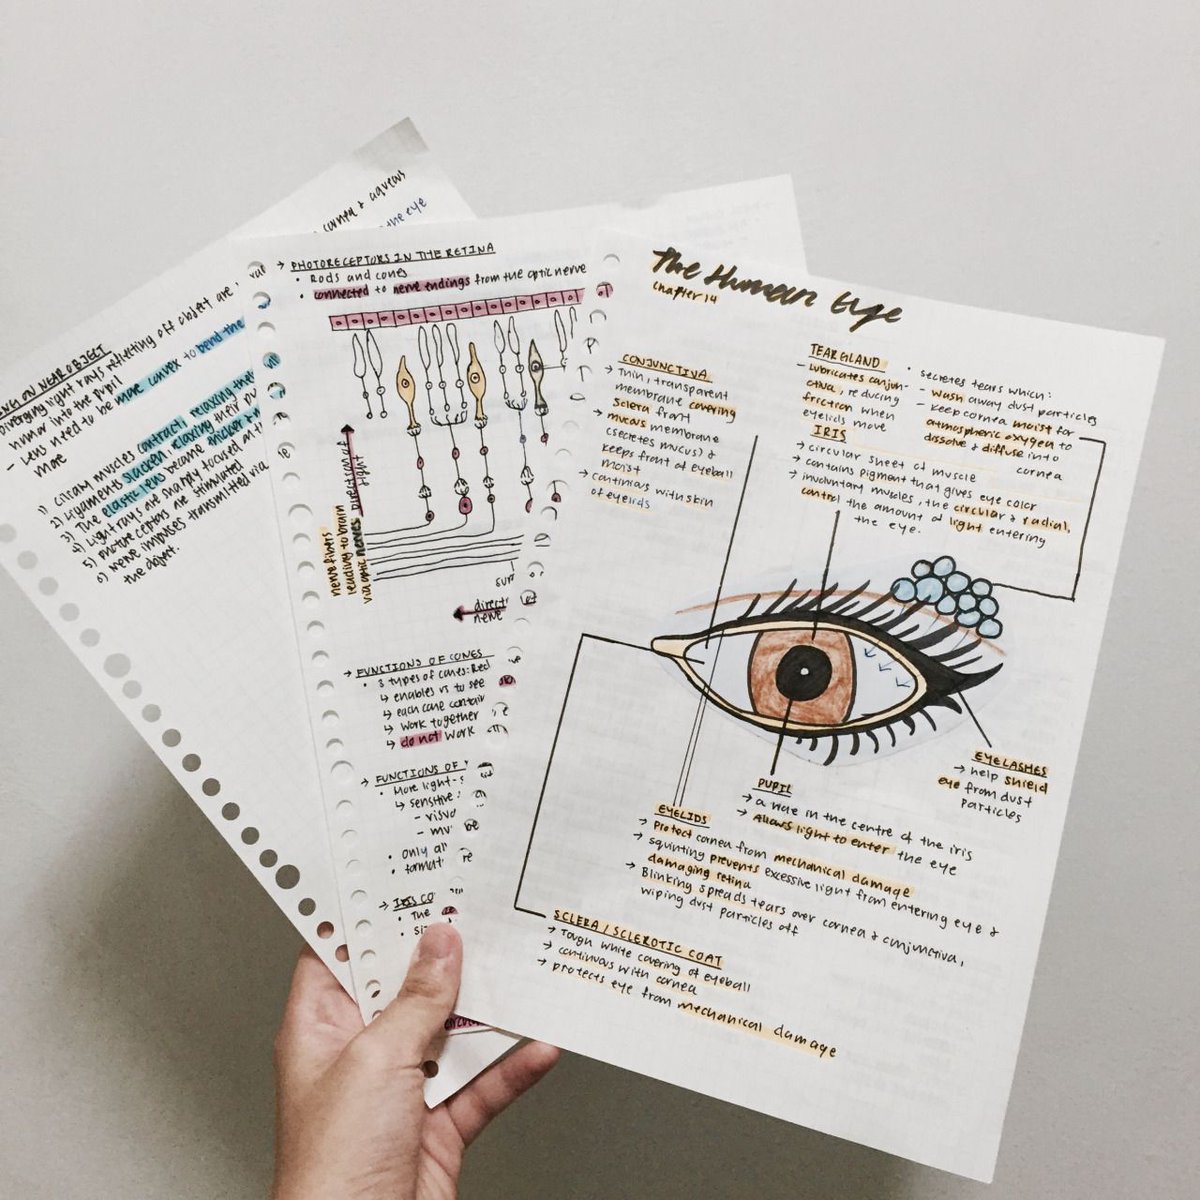 cornea & aqueous
the eye
NG ON NEAR OBJECT
Diverging light rays reflecting off object are
humor into the pupil
- Lens need to be more convex to bend the
more
1) Ciliary muscles contract, relaxing their
2) Ligaments slacken, relaxing their pu
3) The elastic lens become thicker &
4) Light rays are sharply focused on th
5) Photoreceptors are stimulated
6) Nerve impulses transmitted via
the object.
→ PHOTORECEPTORS IN THE RETINA
• Rods and cones
• connected to nerve endings from the optic nerve
direction of light
nerve fibers
leading to brain
via optic nerves
direct
nerve
→ FUNCTIONS OF CONES
• 3 types of cones: Red
↳ enables us to see
↳ each cone contain
↳ work together
↳ do not work
→ FUNCTIONS OF
• More light-s
↳ sensitive
- visu
- mu
• only al
• format
• The
• si
The Human Eye
Chapter 14
CONJUNCTIVA
→ Thin, transparent
membrane covering
sclera front
→ mucus membrane
(secretes mucus) &
keeps front of eyeball
moist
→ continous with skin
of eyelids
TEAR GLAND
- Lubricates conjun-
ctiva, reducing
friction when
eyelids move
• secretes tears which:
- wash away dust particles
- keep cornea moist for
atmospheric oxygen to
dissolve & diffuse into
cornea
IRIS
→ circular sheet of muscle
→ contains pigment that gives eye color
→ involuntary muscles, the circular & radial,
control the amount of light entering
the eye.
EYELASHES
→ help shield
eye from dust
particles
PUPIL
→ a hole in the centre of the iris
→ Allows light to enter the eye
EYELIDS
→ Protect cornea from mechanical damage
→ squinting prevents excessive light from entering eye &
damaging retina
→ Blinking spreads tears over cornea & conjunctiva,
wiping dust particles off
SCLERA / SCLEROTIC COAT
→ Tough white covering of eyeball
→ continous with cornea
→ protects eye from mechanical damage